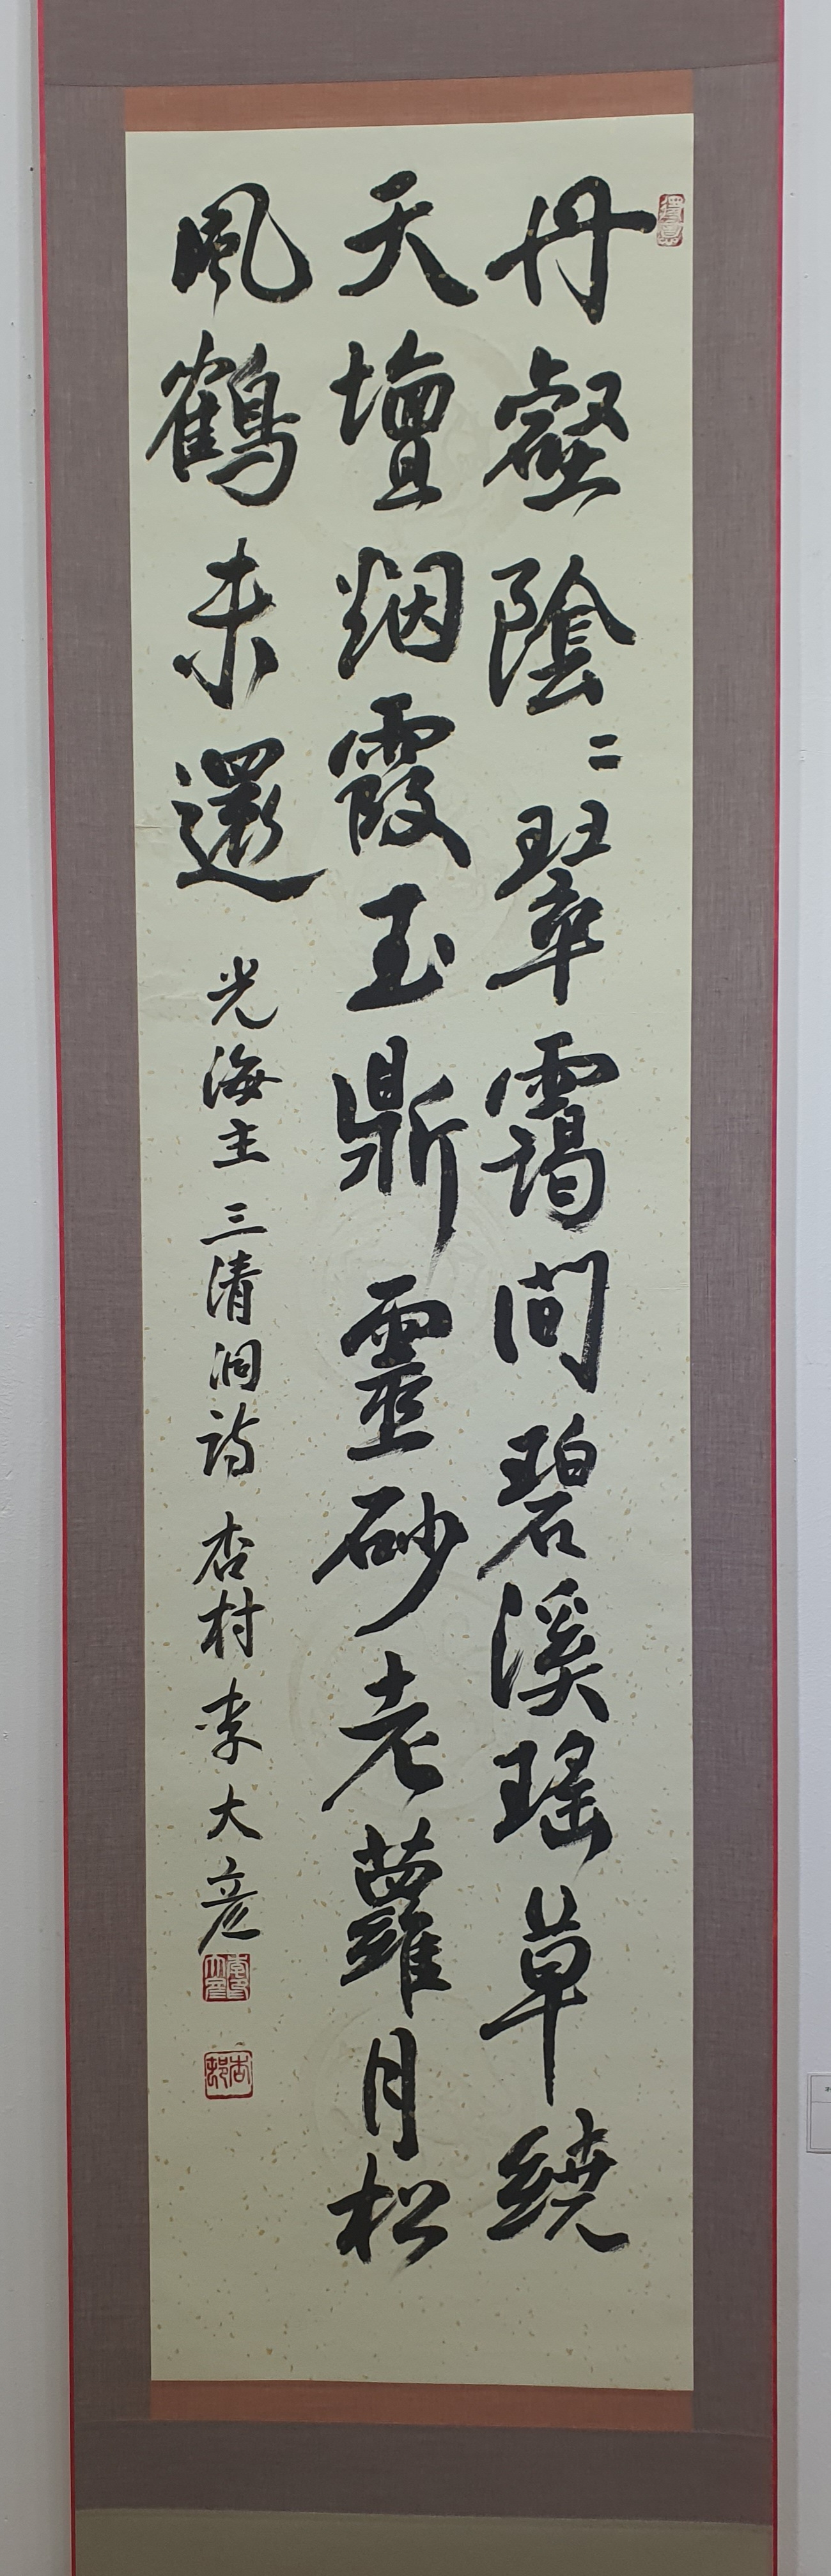 丹壑陰〻翠靄間碧溪瑤草繞
天壇烟霞玉鼎靈砂老蘿月松
風鶴未還 光海主 三清洞詩 杏村 李大彦
杏邨